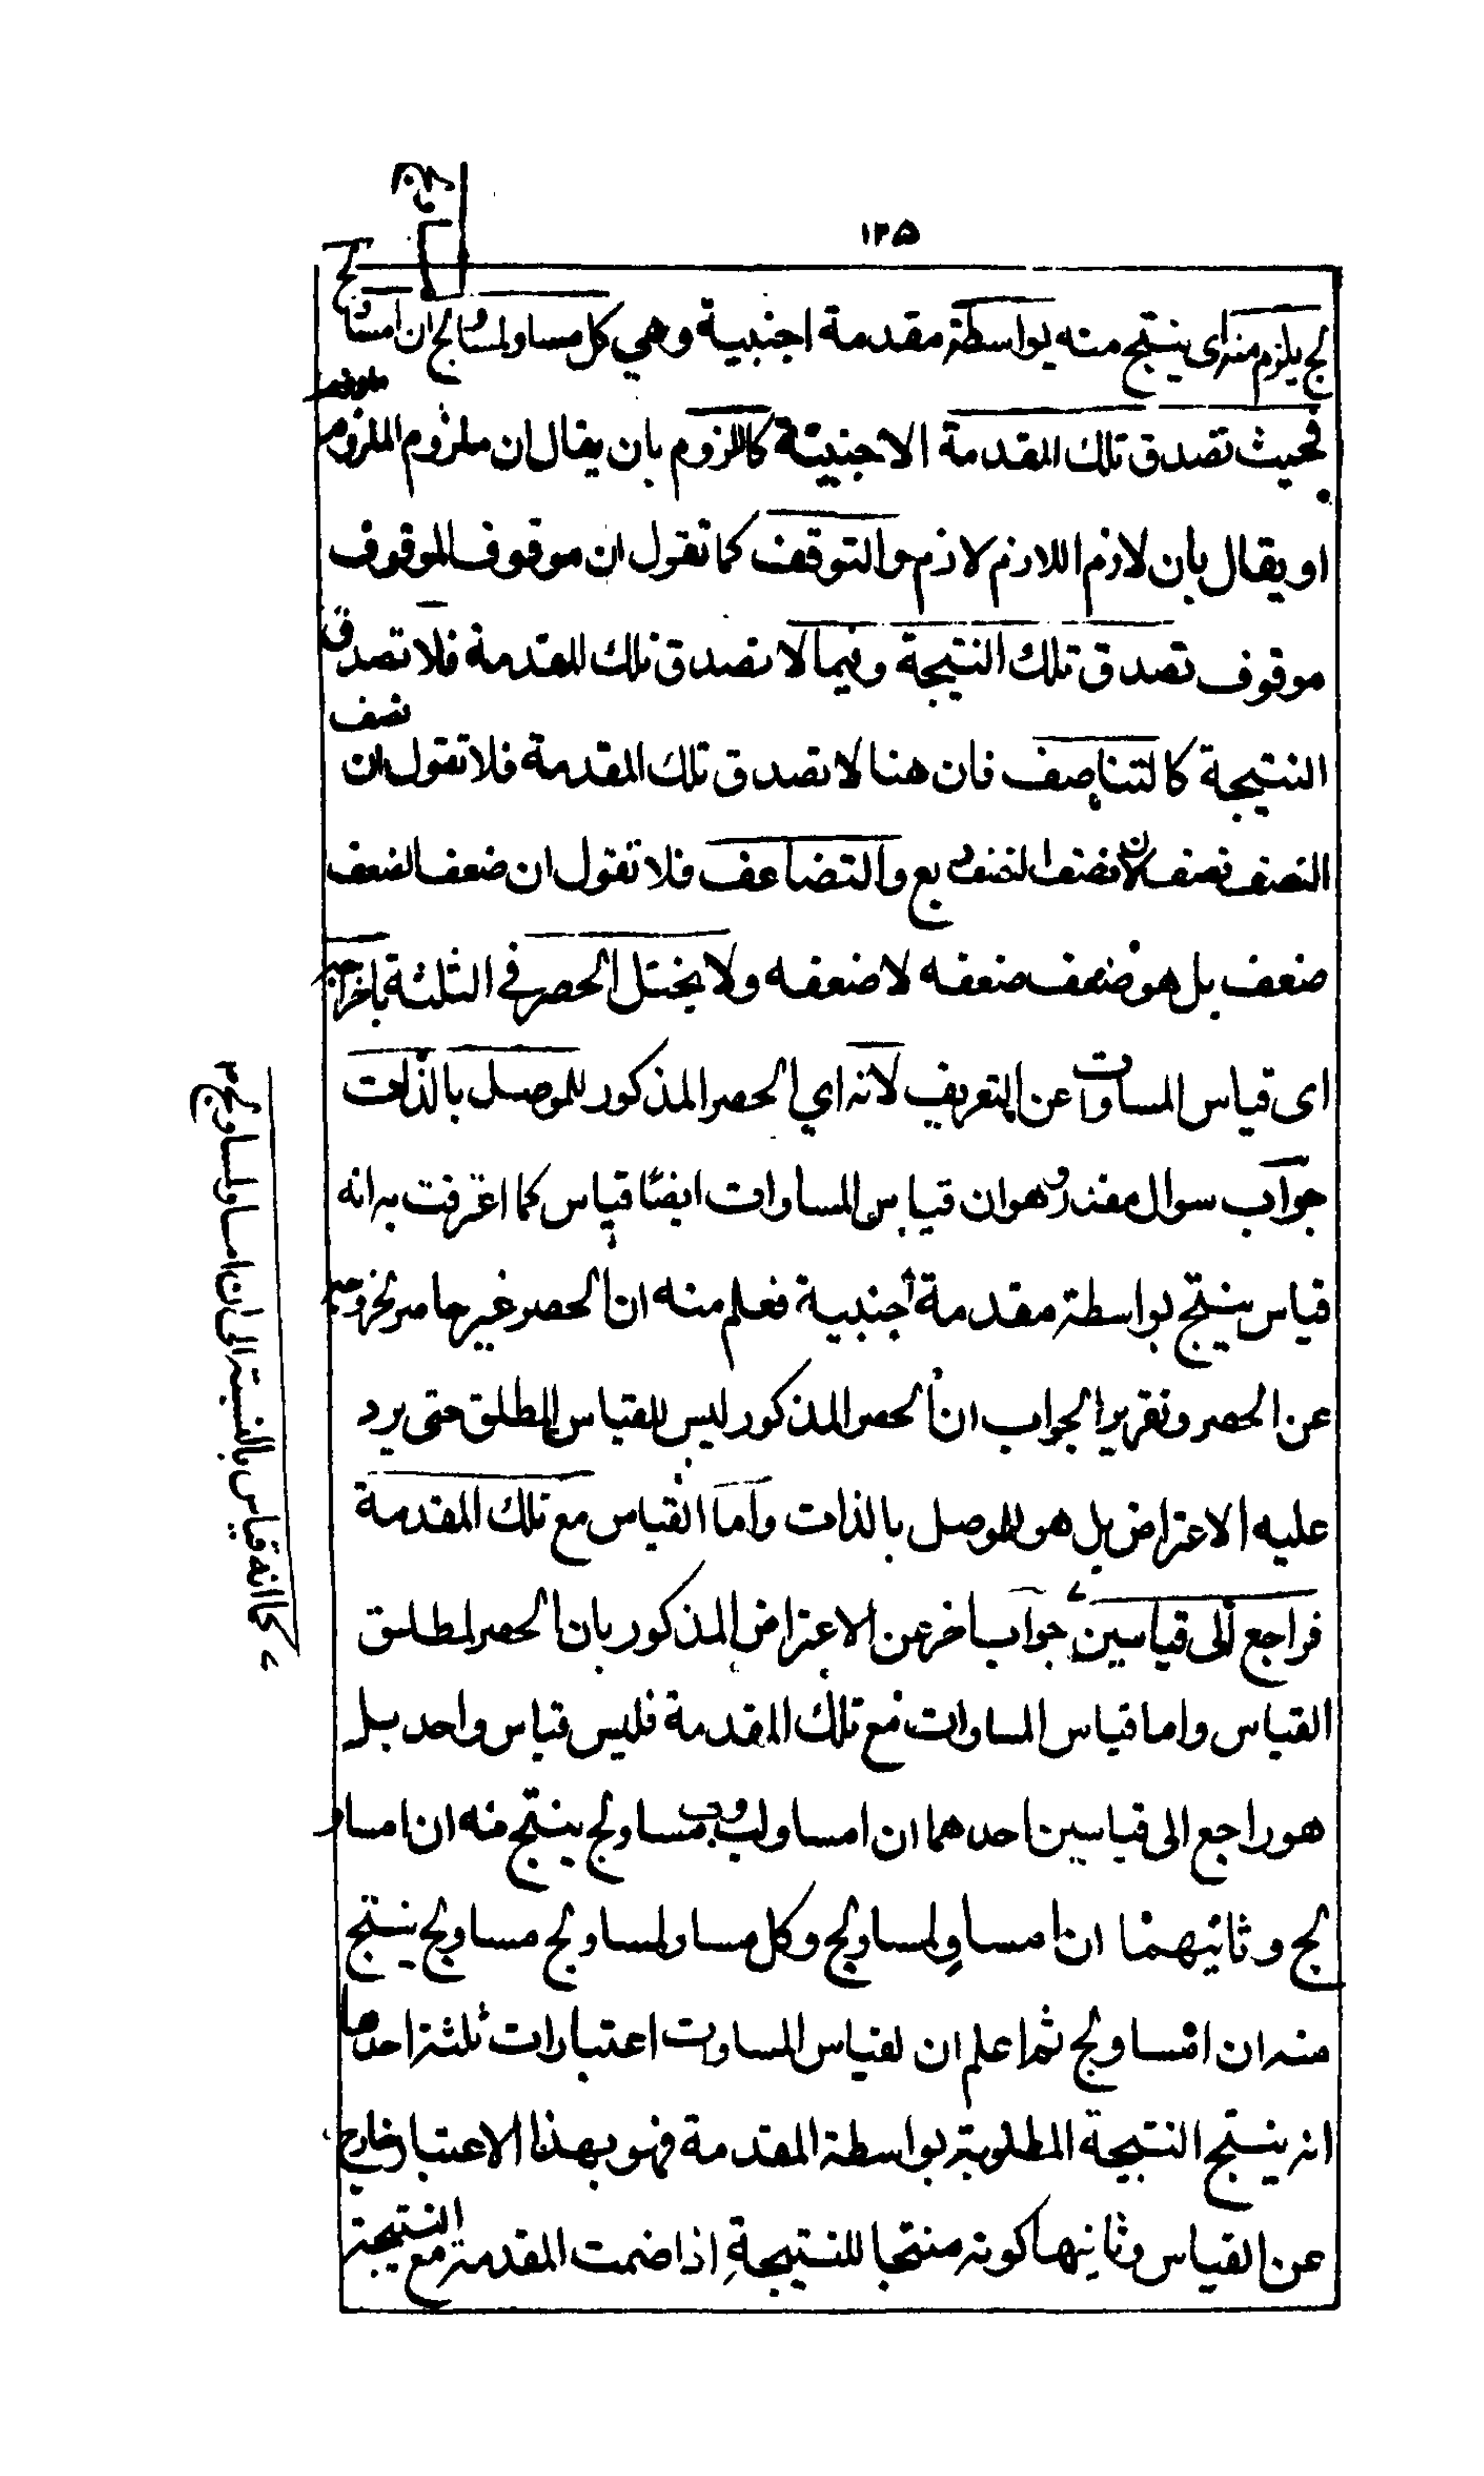 ١٢٥
لج يلزم منه اى ينتج منه بواسطة مقدمة اجنبية وهي كل مساو لمساو لج ان ا مساو
لج
فحيث تصدق تلك المقدمة الاجنبية كاللزوم بان يقال ان ملزوم الملزوم
ملزوم
او يقال بان لازم اللازم لازم والتوقف كما تقول ان موقوف الموقوف
موقوف تصدق تلك النتيجة وفيما لا تصدق تلك المقدمة فلا تصدق
النتيجة كالتناصف فان هنا لا تصدق تلك المقدمة فلا تقول ان نصف
النصف نصف لان نصف النصف ربع والتضاعف فلا تقول ان ضعف الضعف
ضعف بل هو ضعف ضعفه لا ضعفه ولا يختل الحصر في الثلثة باخراجه
اى قياس المساوات عن التعريف لانه اي الحصر المذكور للموصل بالذات
جواب سوال مقدر وهو ان قياس المساوات ايضا قياس كما اعترفت به انه
قياس ينتج بواسطة مقدمة اجنبية فعلم منه ان الحصر غير حاصر لخروجه
عن الحصر وتقرير الجواب ان الحصر المذكور ليس للقياس المطلق حتى يرد
عليه الاعتراض بل هو للموصل بالذات واما القياس مع تلك المقدمة
فراجع الى قياسين جواب اخر عن الاعتراض المذكور بان الحصر لمطلق
القياس واما قياس المساوات مع تلك المقدمة فليس قياس واحد بل
هو راجع الى قياسين احدهما ان ا مساو لب وب مساو لج ينتج منه ان ا مساو
لج وثانيهما ان ا مساو لمساو لج وكل مساو لمساو لج مساو لج ينتج
منه ان ا مساو لج ثم اعلم ان لقياس المساوات اعتبارات ثلثة احدها
انه ينتج النتيجة المطلوبة بواسطة المقدمة فهو بهذا الاعتبار خارج
عن القياس وثانيها كونه منتجا للنتيجة اذا ضمت المقدمة مع النتيجة
كما انه قياس بالنسبة الى ان ا مساو لمساو لج